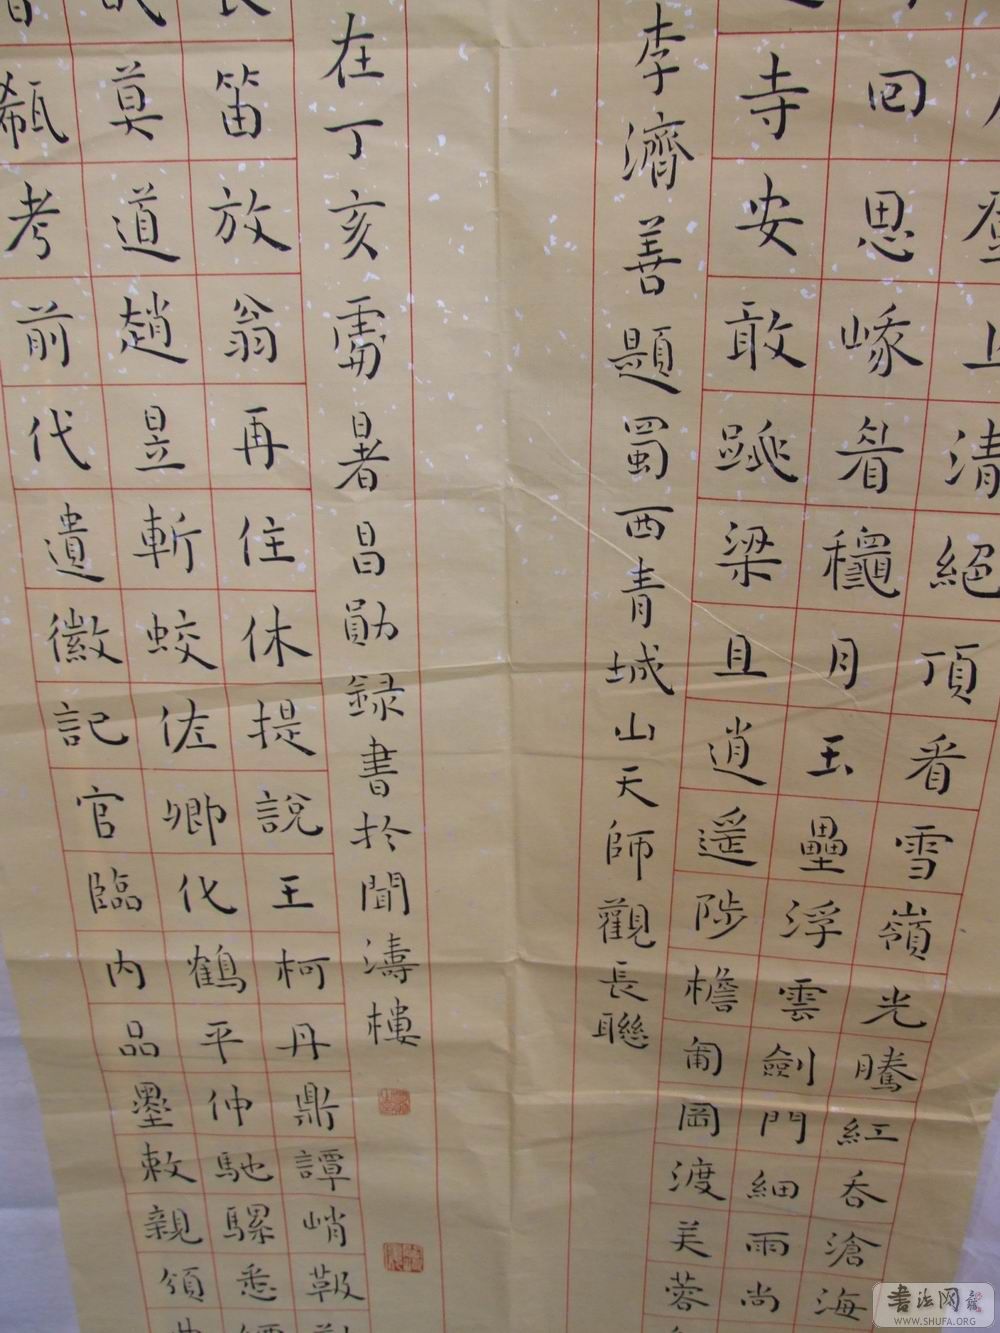 上清絕頂看雪嶺光騰紅吞滄海
回思峩眉穐月玉壘浮雲劍門細雨尚
寺安敢跳梁且逍遙陟檐匍岡渡芙蓉
李濟善題蜀西青城山天師觀長聯
在丁亥處暑昌勛録書於聞濤樓
笛放翁再住休提說王柯丹鼎譚峭鞎
莫道趙昱斬蛟佐卿化鶴平仲馳騾悉
甌考前代遺徽記官臨內品墨敕親頒
書法网
WWW.SHUFA.ORG